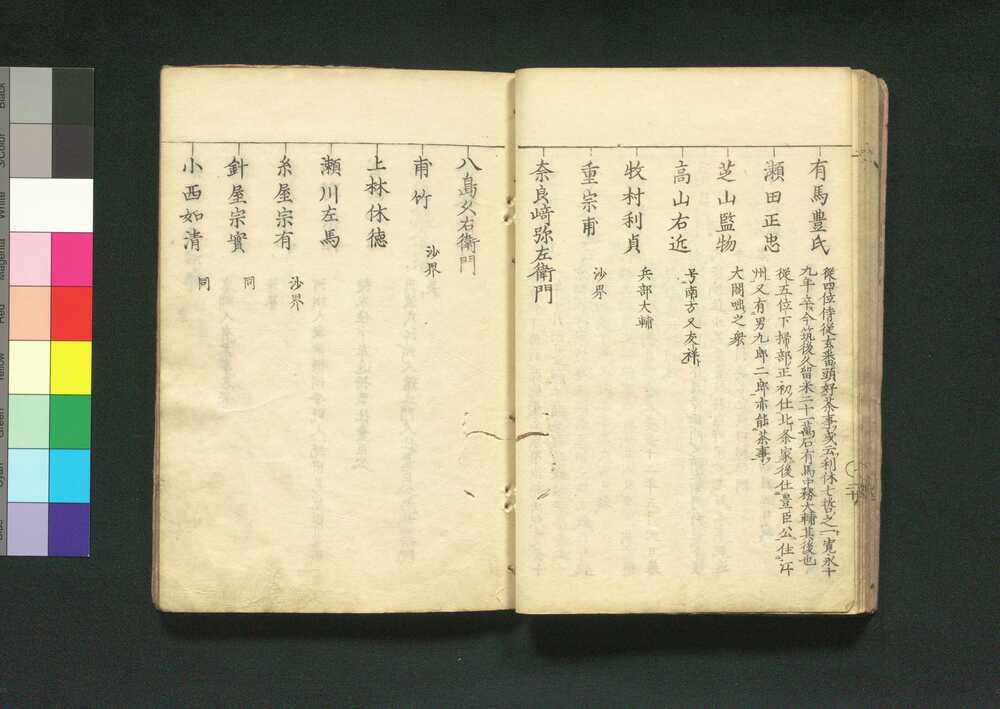 有馬豊氏
從四位侍従玄番頭好茶事或云利休七哲之一寛永十
九年卒今筑後久留米二十一萬石有馬中務大輔其後也
瀬田正忠
從五位下掃部正初仕北条家後仕豊臣公住
州又有男九郎二郎亦能茶事
芝山監物
大閤咄之衆
高山右近
号南方又友祥
牧村利貞
兵部大輔
重宗甫
沙界
奈良﨑弥左衛門
八島久右衛門
甫竹
沙界
上林休徳
瀬川左馬
糸屋宗有
沙界
針屋宗實
同
小西如清
同